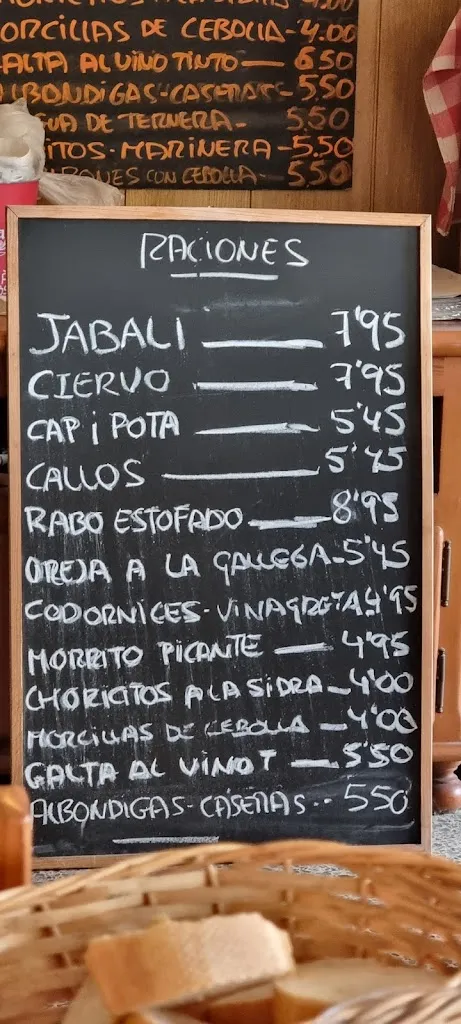 4.00
ORCILLAS DE CEBOLLA-4.00
ALTA AL VINO TINTO — 6.50
LBONDIGAS-CASERAS-5.50
DE TERNERA- 5.50
ITOS-MARINERA-5.50
CON CEBOLLA- 5.50
RACIONES
JABALI — 7'95
CIERVO — 7'95
CAP i POTA — 5'45
CALLOS — 5'45
RABO ESTOFADO — 8'95
OREJA A LA GALLEGA-5'45
CODORNICES-VINAGRETA 4'95
MORRITO PICANTE — 4'95
CHORICITOS A LA SIDRA-4'00
MORCILLAS DE CEBOLLA -4'00
GALTA AL VINO T — 5'50
ALBONDIGAS-CASERAS-- 550